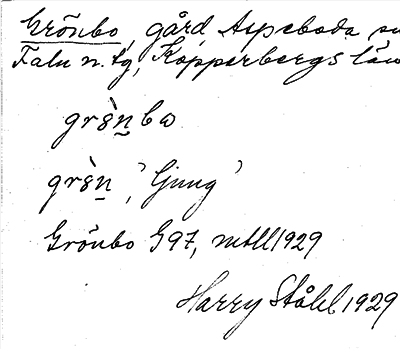 Grönbo, gård, Aspeboda sn
Falu n. tg, Kopparbergs län
grön, 'ljung'
Grönbo G97, mtll 1929
Harry Ståhl 1929